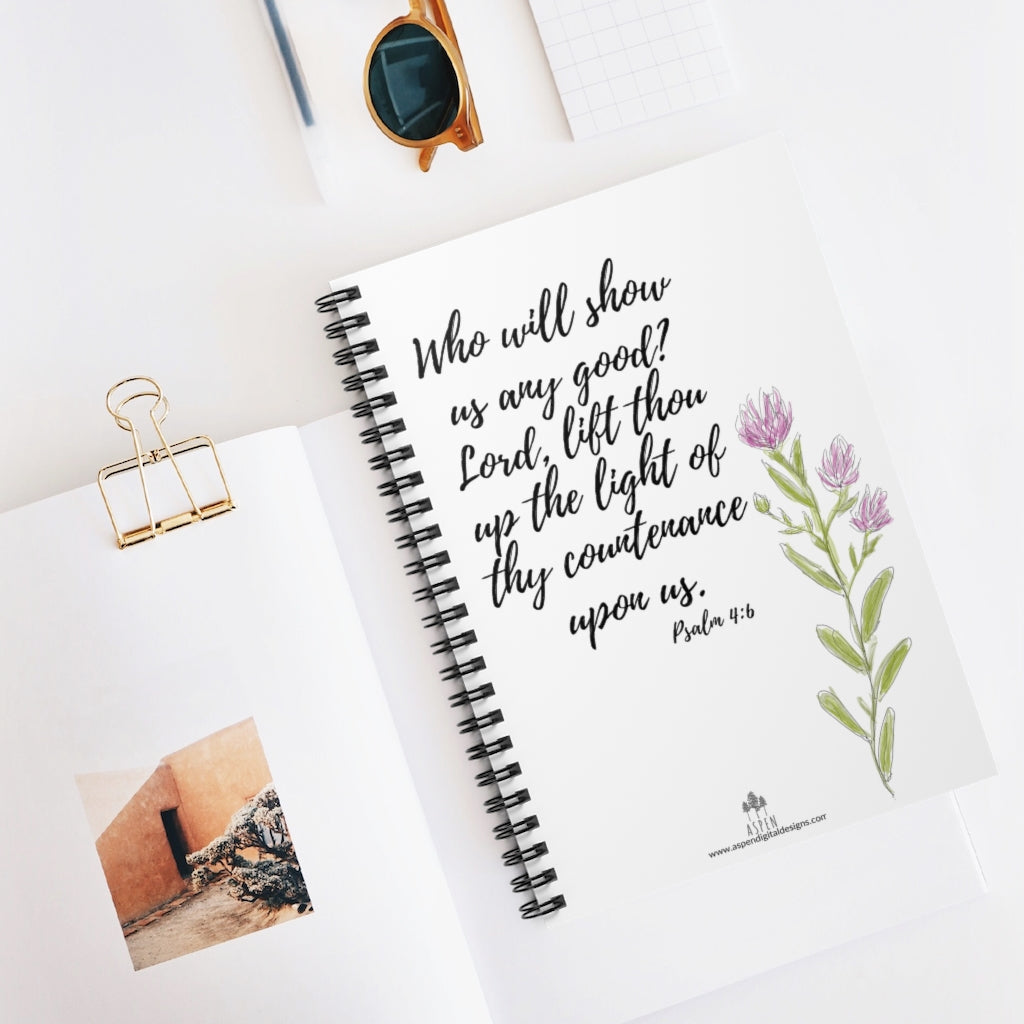 Who will show
us any good?
Lord, lift thou
up the light of
thy countenance
upon us.
Psalm 4:6
ASPEN
www.aspendigitaldesigns.com